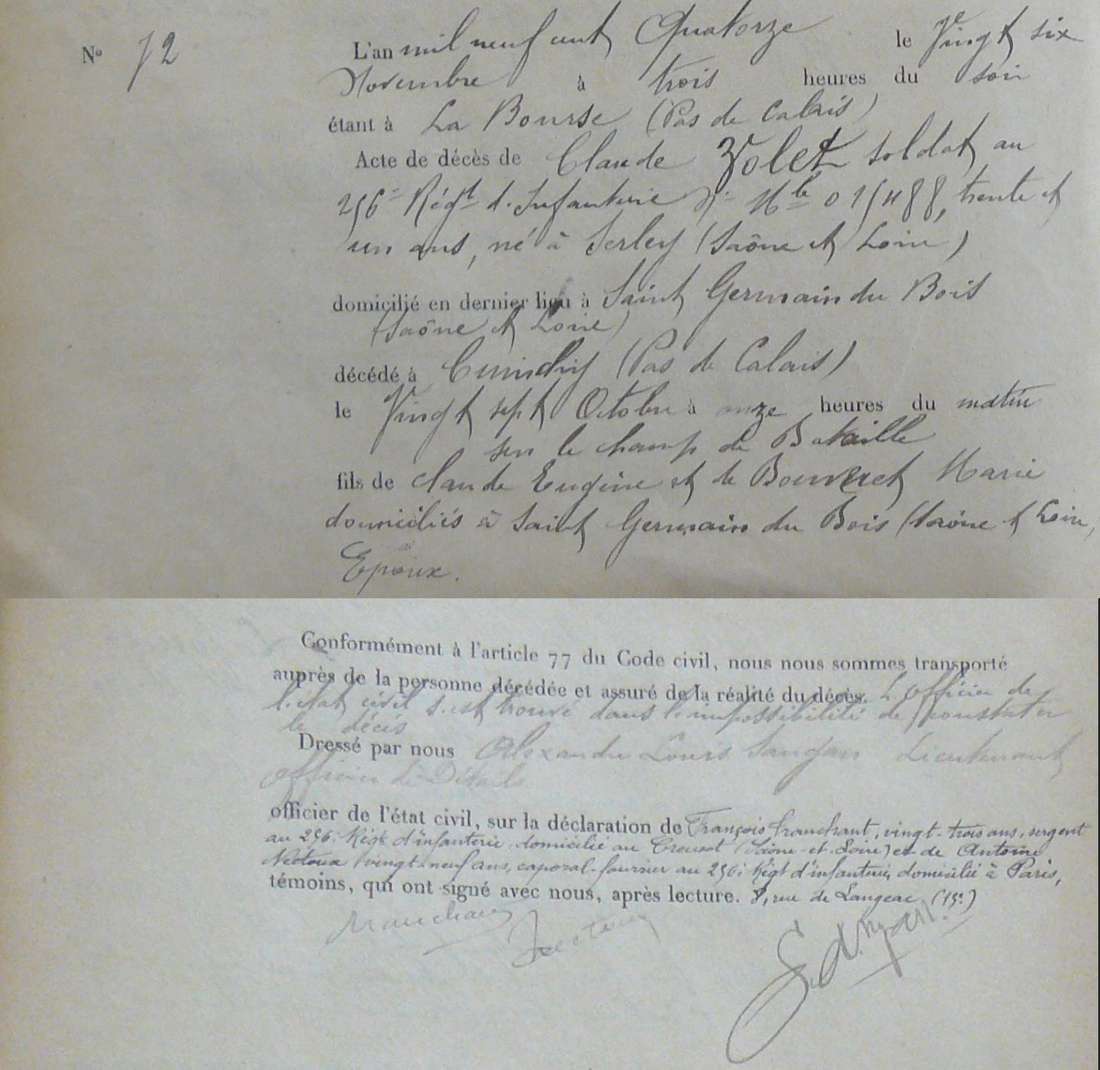 N° 72
L'an mil neuf cent Quatorze le Vingt six
Novembre à trois heures du soir
étant à La Bourse (Pas de Calais)
Acte de décès de Claude Volet soldat au
256e Régt d'Infanterie No Mle 015488, trente et
un ans, né à Serley (Saône et Loire)
domicilié en dernier lieu à Saint Germain du Bois
(Saône et Loire)
décédé à Cuinchy (Pas de Calais)
le Vingt sept Octobre à onze heures du matin
sur le champ de Bataille
fils de Claude Eugène et de Marie
domiciliés à Saint Germain du Bois (Saône et Loire,
Epoux.
Conformément à l'article 77 du Code civil, nous nous sommes transporté
auprès de la personne décédée et assuré de la réalité du décès. L'officier de
l'état civil s'est trouvé dans l'impossibilité de constater
le décès
Dressé par nous Alexandre Louis Lieutenant
officier de Détails
officier de l'état civil, sur la déclaration de François Franchant, vingt-trois ans, sergent
au 256e Régt d'infanterie, domicilié au Creusot (Saône-et-Loire) et de Antoine
vingt-neuf ans, caporal-fourrier au 256e Régt d'infanterie, domicilié à Paris,
témoins, qui ont signé avec nous, après lecture. 8, rue de Langeac (15e)